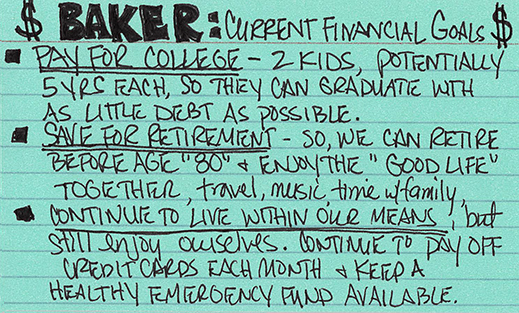 $ BAKER: CURRENT FINANCIAL GOALS $
PAY FOR COLLEGE - 2 KIDS, POTENTIALLY
5 YRS EACH, SO THEY CAN GRADUATE WTH
AS LITTLE DEBT AS POSSIBLE.
SAVE FOR RETIREMENT - SO, WE CAN RETIRE
BEFORE AGE "80" & ENJOY THE "GOOD LIFE"
TOGETHER, travel, music, time w/family,
CONTINUE TO LIVE WITHIN OUR MEANS, but
still enjoy ourselves. CONTINUE TO PAY OFF
CREDIT CARDS EACH MONTH & KEEP A
HEALTHY EMERGENCY FUND AVAILABLE.